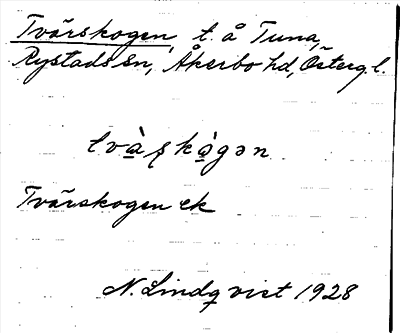 Tvärskogen, t. å Tuna,
Rystads sn, Åkerbo hd, Österg. l.
tvà̱ʂkò̱gən
Tvärskogen ek
N. Lindqvist 1928